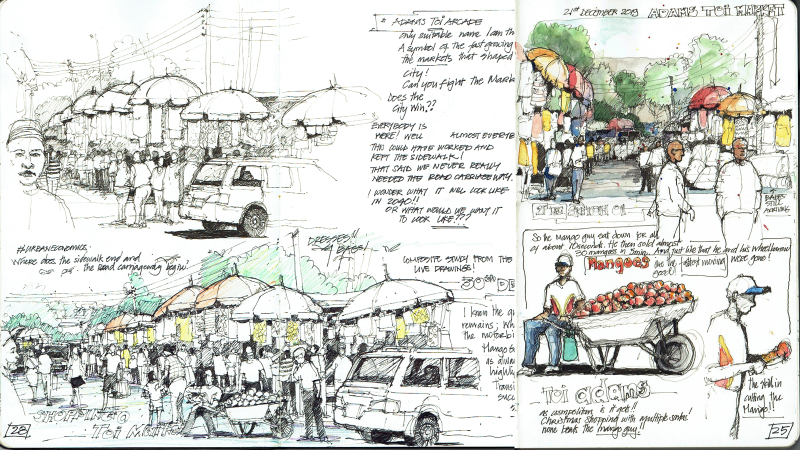 ADAMS TOI ARCADE
only suitable name I am th
A symbol of the fast growing
the markets that shaped
City!
Can you fight the Mark
Does the
City Win??
EVERYBODY IS
HERE! WELL ALMOST EVERYBO
THIS COULD HAVE WORKED AND
KEPT THE SIDEWALK!
THAT SAID WE NEVER REALLY
NEEDED THE ROAD CARRIAGEWAY.
I WONDER WHAT IT WILL LOOK LIKE
IN 2040!!
OR WHAT WOULD WE WANT IT
TO LOOK LIKE???
#URBANECONOMICS,
Where does the sidewalk end and
the road carriageway begin.
DRESSES!!
& BAGS!
COMPOSITE STUDY FROM THE
LIVE DRAWINGS!
30
I know the
remains; Wh
the motorbi
Mango
highw
Transi
SHOPPING @
TOI MARKET
28
21st DECEMBER 2018 ADAMS TOI MARKET
So the Mango guy sat down for all
of about 10 seconds. He then sold almost
30 mangoes in 5min. And just like that he and his wheelbarrow
Mangoes are the fastest moving were gone!
good!
TOI adams
as cosmopolitan as it gets!!
Christmas shopping with multiple smiles
none beats the mango guy!!
The skill in
cutting the
Mango!!
25